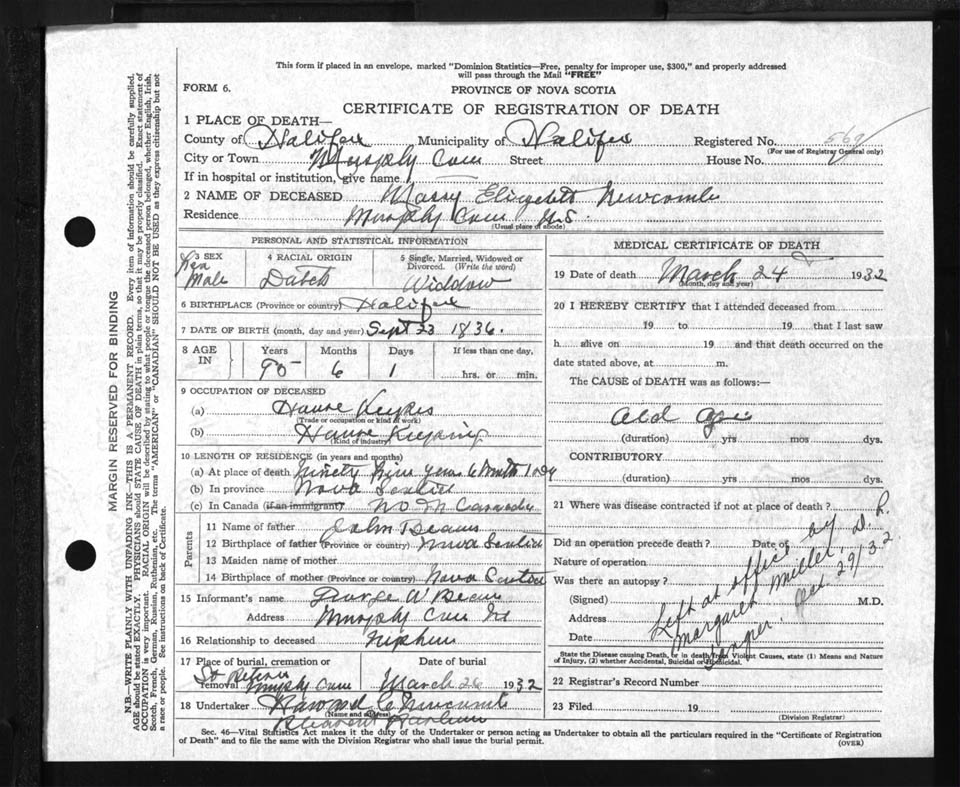 This form if placed in an envelope, marked "Dominion Statistics—Free, penalty for improper use, $300," and properly addressed
will pass through the Mail "FREE"
FORM 6.
PROVINCE OF NOVA SCOTIA
CERTIFICATE OF REGISTRATION OF DEATH
1 PLACE OF DEATH—
County of Halifax Municipality of Halifax Registered No.
(For use of Registry General only)
City or Town Murphy Cove Street House No.
If in hospital or institution, give name
2 NAME OF DECEASED Mary Elizabeth Newcomb
Residence Murphy Cove N.S.
(Usual place of abode)
PERSONAL AND STATISTICAL INFORMATION
3 SEX 4 RACIAL ORIGIN 5 Single, Married, Widowed or
Divorced. (Write the word)
Male Dutch Widdow
6 BIRTHPLACE (Province or country) Halifax
7 DATE OF BIRTH (month, day and year) Sept 23 1836.
8 AGE IN Years Months Days If less than one day,
90 6 1 hrs. or min.
9 OCCUPATION OF DECEASED
(a) House Keeper
(Trade or occupation or kind of work)
(b) House Keeping
(Kind of industry)
10 LENGTH OF RESIDENCE (in years and months)
(a) At place of death Ninety Nine years 6 Month 1 Day
(b) In province Nova Scotia
(c) In Canada (if an immigrant)
Parents
11 Name of father
12 Birthplace of father (Province or country) Nova Scotia
13 Maiden name of mother
14 Birthplace of mother (Province or country) Nova Scotia
15 Informant's name George W Beaver
Address Murphy Cove NS
16 Relationship to deceased
17 Place of burial, cremation or Date of burial
removal St Peters Murphy Cove March 26 1932
18 Undertaker Howard C Newcomb
(Name and address)
MEDICAL CERTIFICATE OF DEATH
19 Date of death March 24 1932
(Month, day and year)
20 I HEREBY CERTIFY that I attended deceased from
19 to 19 that I last saw
h alive on 19 and that death occurred on the
date stated above, at m.
The CAUSE of DEATH was as follows:—
Old Age
(duration) yrs mos dys.
CONTRIBUTORY
(duration) yrs mos dys.
21 Where was disease contracted if not at place of death?
Did an operation precede death? Date of
Nature of operation
Was there an autopsy?
(Signed) M.D.
Address
Date
Left at office by D. R.
Margaret Miller
Tangier. Oct. 29/32.
State the Disease causing Death, or in death from Violent Causes, state (1) Means and Nature
of Injury, (2) whether Accidental, Suicidal or Homicidal.
22 Registrar's Record Number
23 Filed 19
(Division Registrar)
Sec. 46—Vital Statistics Act makes it the duty of the Undertaker or person acting as Undertaker to obtain all the particulars required in the "Certificate of Registration
of Death" and to file the same with the Division Registrar who shall issue the burial permit.
(OVER)
MARGIN RESERVED FOR BINDING
N.B.—WRITE PLAINLY WITH UNFADING INK—THIS IS A PERMANENT RECORD. Every item of information should be carefully supplied.
AGE should be stated EXACTLY. PHYSICIANS should STATE CAUSE OF DEATH in plain terms, so that it may be properly classified. Exact statement of
OCCUPATION is very important. RACIAL ORIGIN will be described by stating to what people or tongue the deceased person belonged, whether English, Irish,
Scotch, French, German, Russian, Ruthenian, etc. The terms "AMERICAN" or "CANADIAN" SHOULD NOT BE USED as they express citizenship but not
a race or people. See instructions on back of Certificate.